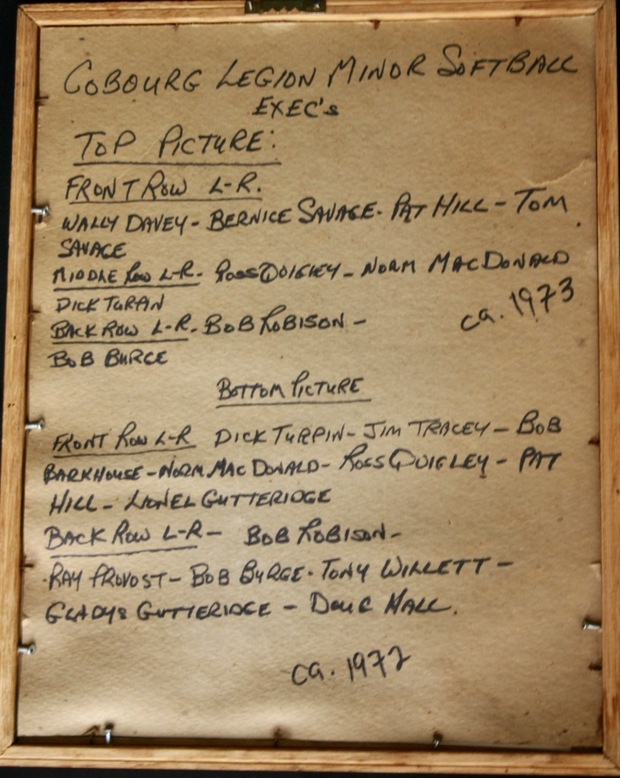 COBOURG LEGION MINOR SOFTBALL
EXEC's
TOP PICTURE:
FRONT ROW L-R.
WALLY DAVEY - BERNICE SAVAGE - PAT HILL - TOM
SAVAGE
MIDDLE ROW L-R - ROSS QUIGLEY - NORM MACDONALD
DICK TURPIN
BACK ROW L-R - BOB ROBISON -
ca. 1973
BOB BURGE
BOTTOM PICTURE
FRONT ROW L-R DICK TURPIN - JIM TRACEY - BOB
BARKHOUSE - NORM MACDONALD - ROSS QUIGLEY - PAT
HILL - LIONEL GUTTERIDGE
BACK ROW L-R - BOB ROBISON -
RAY PROVOST - BOB BURGE - TONY WILLETT -
GLADYS GUTTERIDGE - DOUG HALL.
ca. 1972